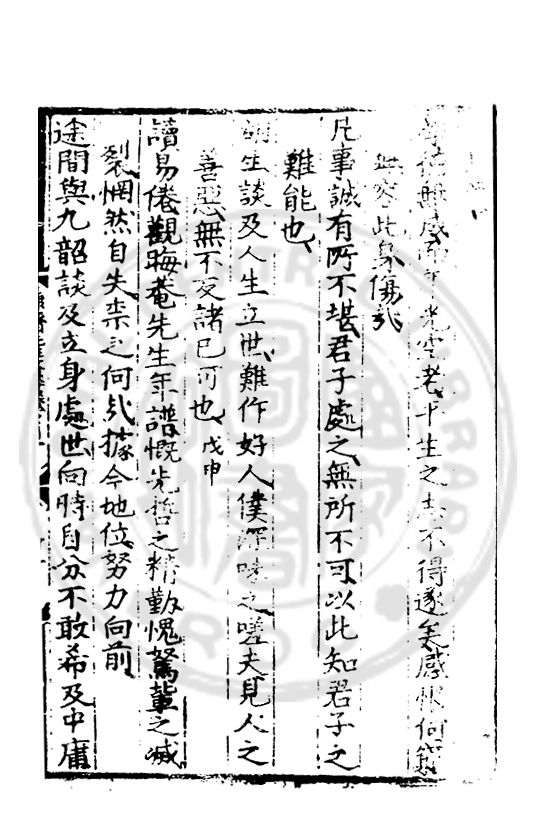 無成而年光空老平生之志不得遂矣感恨何窮
無容此身傷哉
凡事誠有所不堪君子處之無所不可以此知君子之
難能也
胡生談及人生立世難作好人僕深味之嗟夫見人之
善惡無不反諸己可也 戊申
讀易倦觀晦菴先生年譜慨先哲之精勤愧駑輩之滅
裂惘然自失柰之何哉據今地位努力向前
途間與九韶談及立身處世向時自分不敢希及中庸